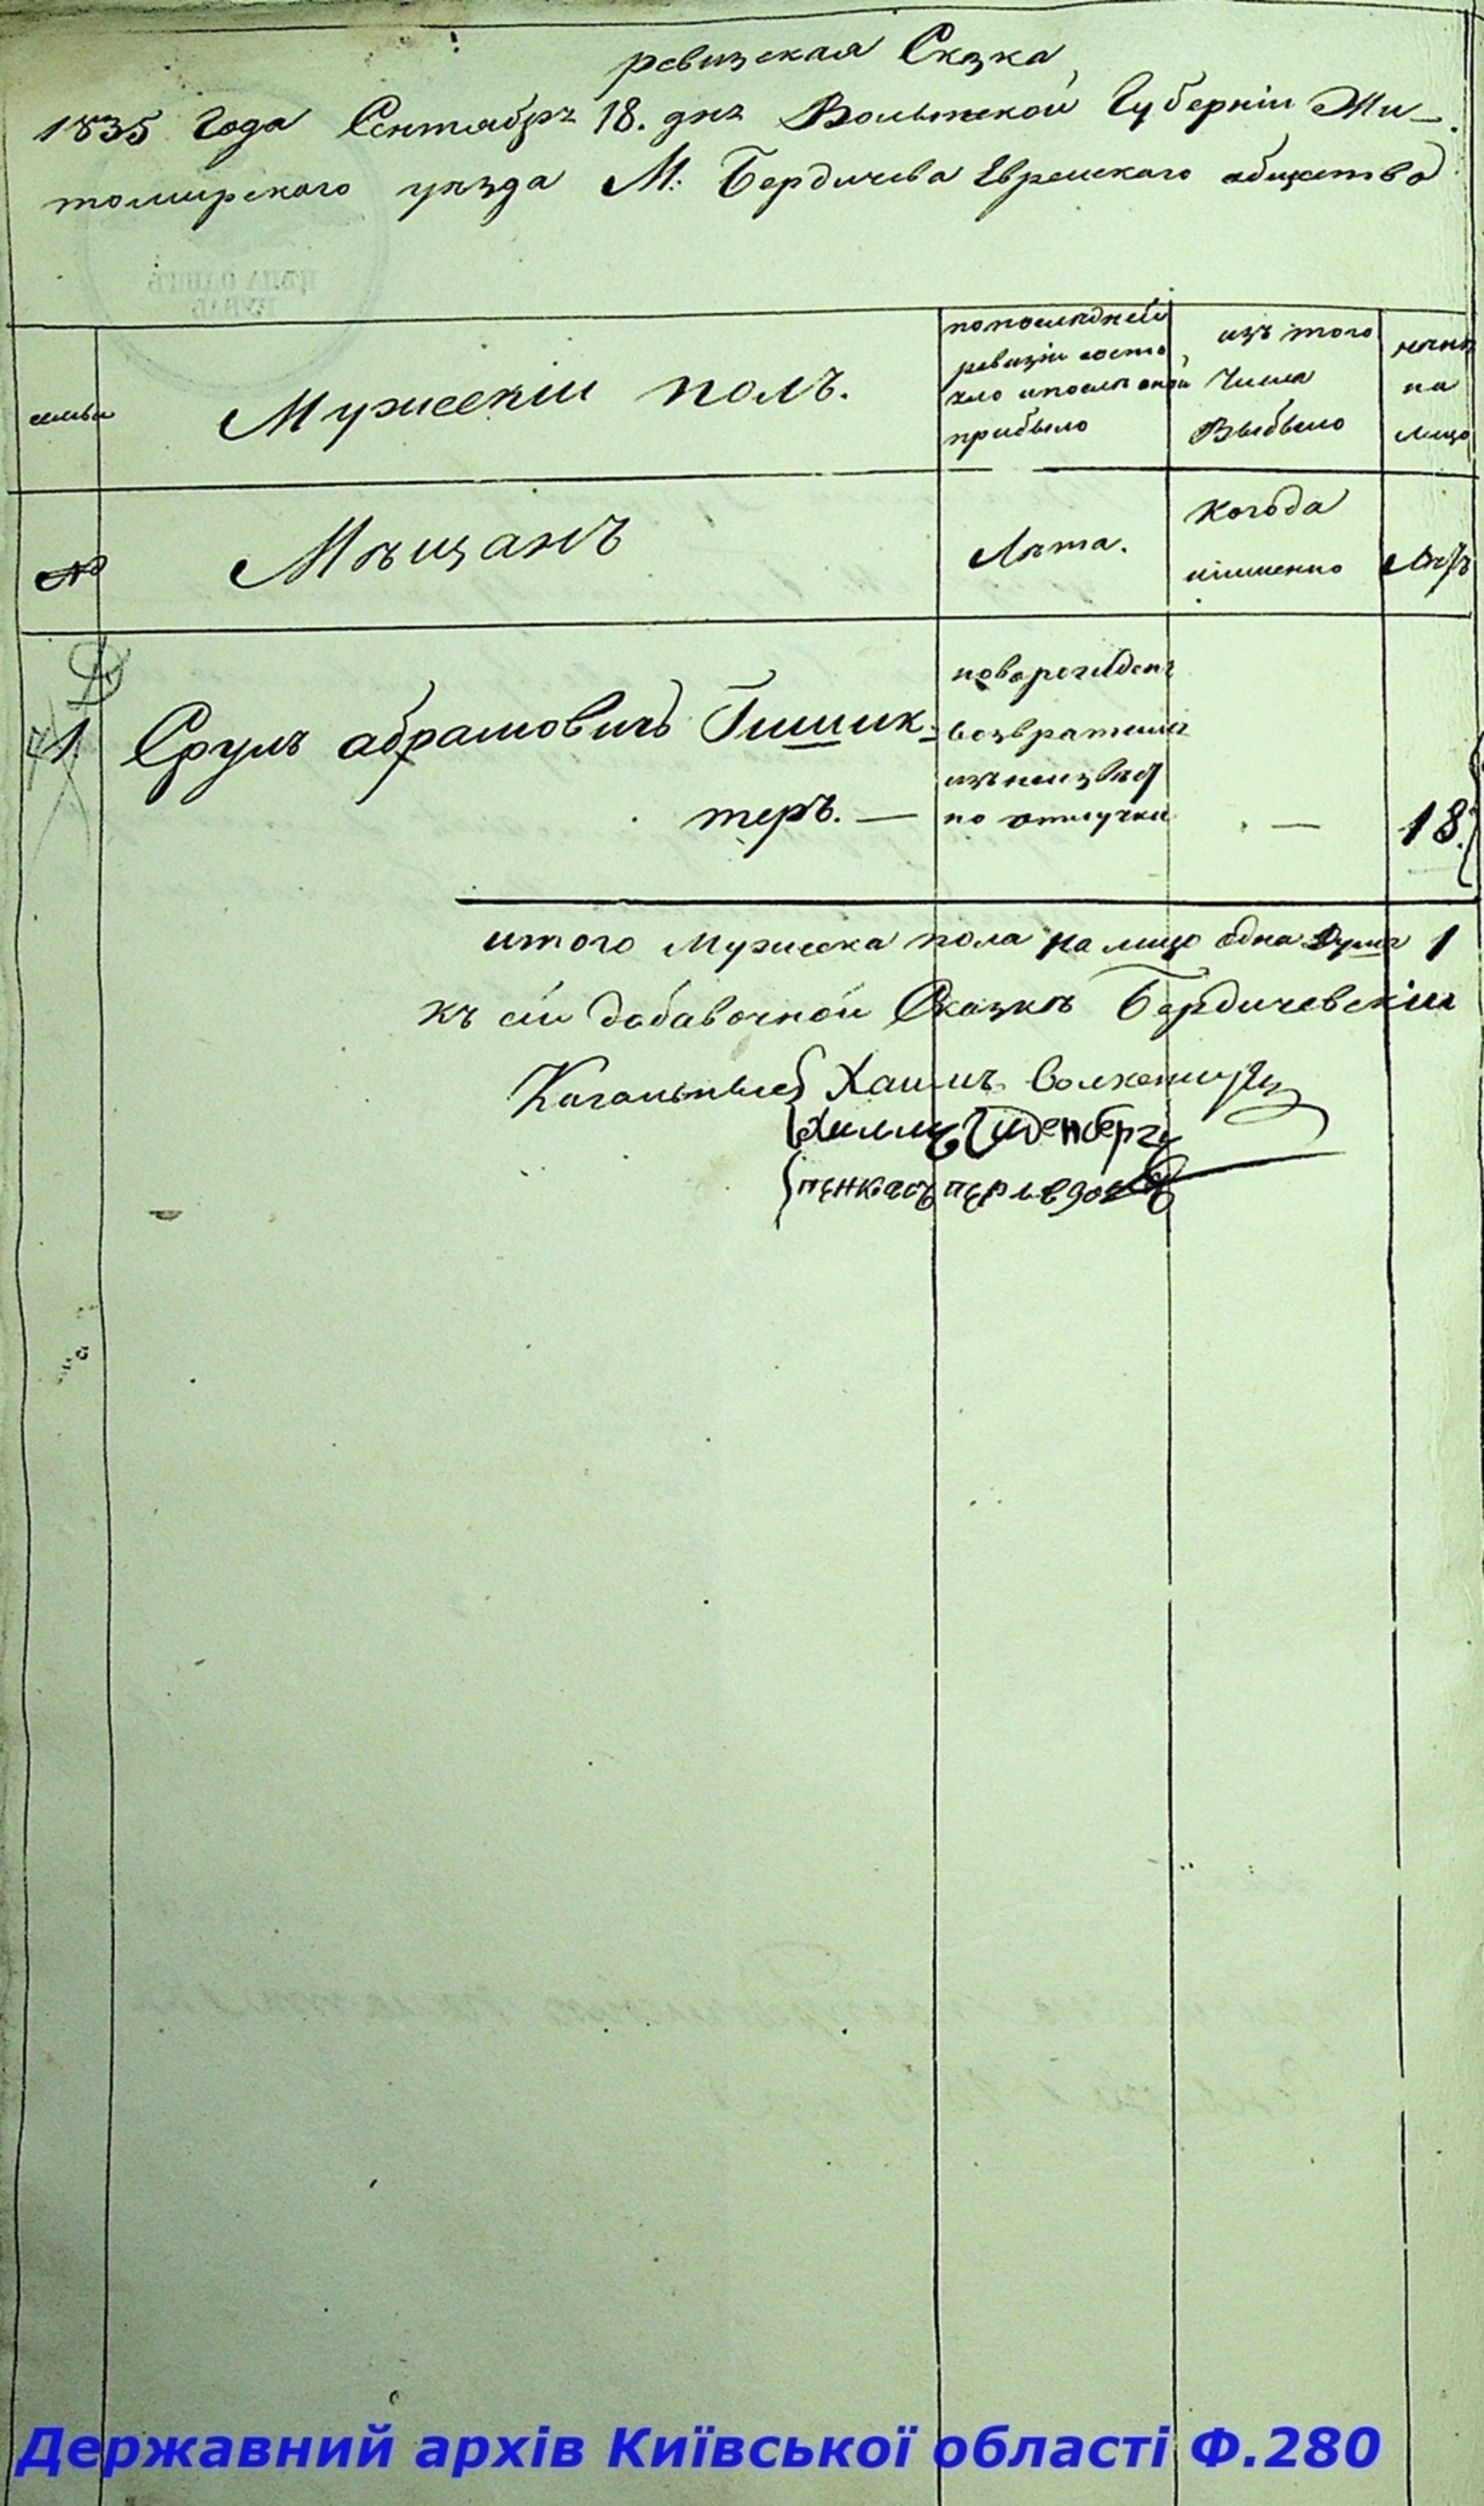 ревизская Сказка
1835 Года Сентября 18. дня Волынской Губерніи Жи-
томирского уѣзда М: Бердичева Еврейского общества
семьи
Мужескій полъ.
по последней
ревизіи состо
яло и после оной
прибыло
изъ того
Числа
Выбыло
ныне
на
лицо
№
Мѣщанъ
Лѣта.
Когда
имменно
Лѣтъ
1
Сруль абрамовичъ Гишик-
теръ. —
возвратился
изъ неизвѣст
но отлучки
—
18.
итого Мужеска пола на лицо одна Душа 1
къ сей добавочной Сказкѣ Бердичевскіи
Кагальные Хаимъ
пенкасъ
Державний архів Київської області Ф.280